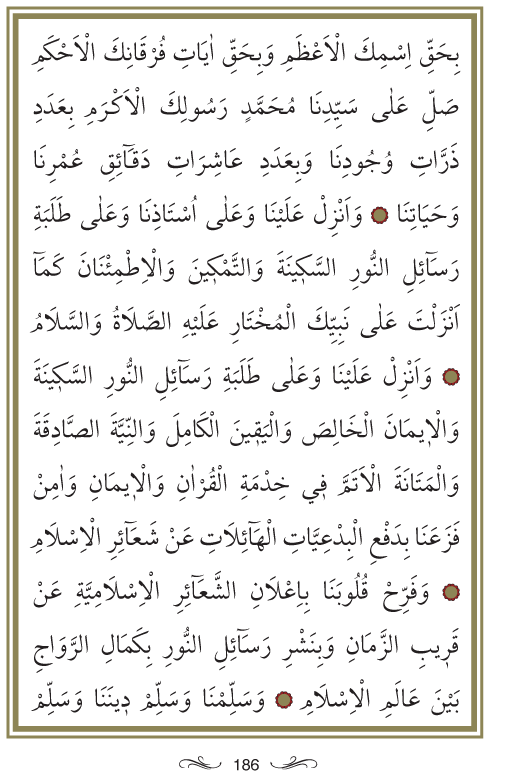 بِحَقِّ اِسْمِكَ الْاَعْظَمِ وَبِحَقِّ اٰيَاتِ فُرْقَانِكَ الْاَحْكَمِ
صَلِّ عَلٰى سَيِّدِنَا مُحَمَّدٍ رَسُولِكَ الْاَكْرَمِ بِعَدَدِ
ذَرَّاتِ وُجُودِنَا وَبِعَدَدِ عَاشِرَاتِ دَقَٓائِقِ عُمْرِنَا
وَحَيَاتِنَا ۞ وَاَنْزِلْ عَلَيْنَا وَعَلٰى اُسْتَاذِنَا وَعَلٰى طَلَبَةِ
رَسَٓائِلِ النُّورِ السَّك۪ينَةَ وَالتَّمْك۪ينَ وَالْاِطْمِئْنَانَ كَمَٓا
اَنْزَلْتَ عَلٰى نَبِيِّكَ الْمُخْتَارِ عَلَيْهِ الصَّلَاةُ وَالسَّلَامُ
۞ وَاَنْزِلْ عَلَيْنَا وَعَلٰى طَلَبَةِ رَسَٓائِلِ النُّورِ السَّك۪ينَةَ
وَالْا۪يمَانَ الْخَالِصَ وَالْيَق۪ينَ الْكَامِلَ وَالنِّيَّةَ الصَّادِقَةَ
وَالْمَتَانَةَ الْاَتَمَّ ف۪ي خِدْمَةِ الْقُرْاٰنِ وَالْا۪يمَانِ وَاٰمِنْ
فَزَعَنَا بِدَفْعِ الْبِدْعِيَّاتِ الْهَٓائِلَاتِ عَنْ شَعَٓائِرِ الْاِسْلَامِ
۞ وَفَرِّحْ قُلُوبَنَا بِاِعْلَانِ الشَّعَٓائِرِ الْاِسْلَامِيَّةِ عَنْ
قَر۪يبِ الزَّمَانِ وَبِنَشْرِ رَسَٓائِلِ النُّورِ بِكَمَالِ الرَّوَاجِ
بَيْنَ عَالَمِ الْاِسْلَامِ ۞ وَسَلِّمْنَا وَسَلِّمْ د۪ينَنَا وَسَلِّمْ
186